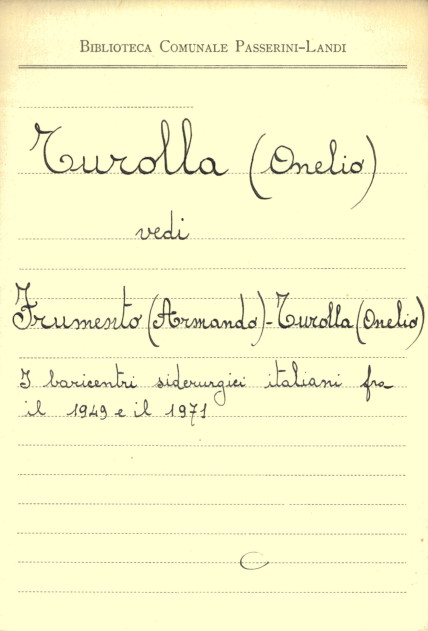 BIBLIOTECA COMUNALE PASSERINI-LANDI
Turolla (Onelio)
vedi
Frumento (Armando) - Turolla (Onelio)
I baricentri siderurgici italiani fra
il 1949 e il 1971